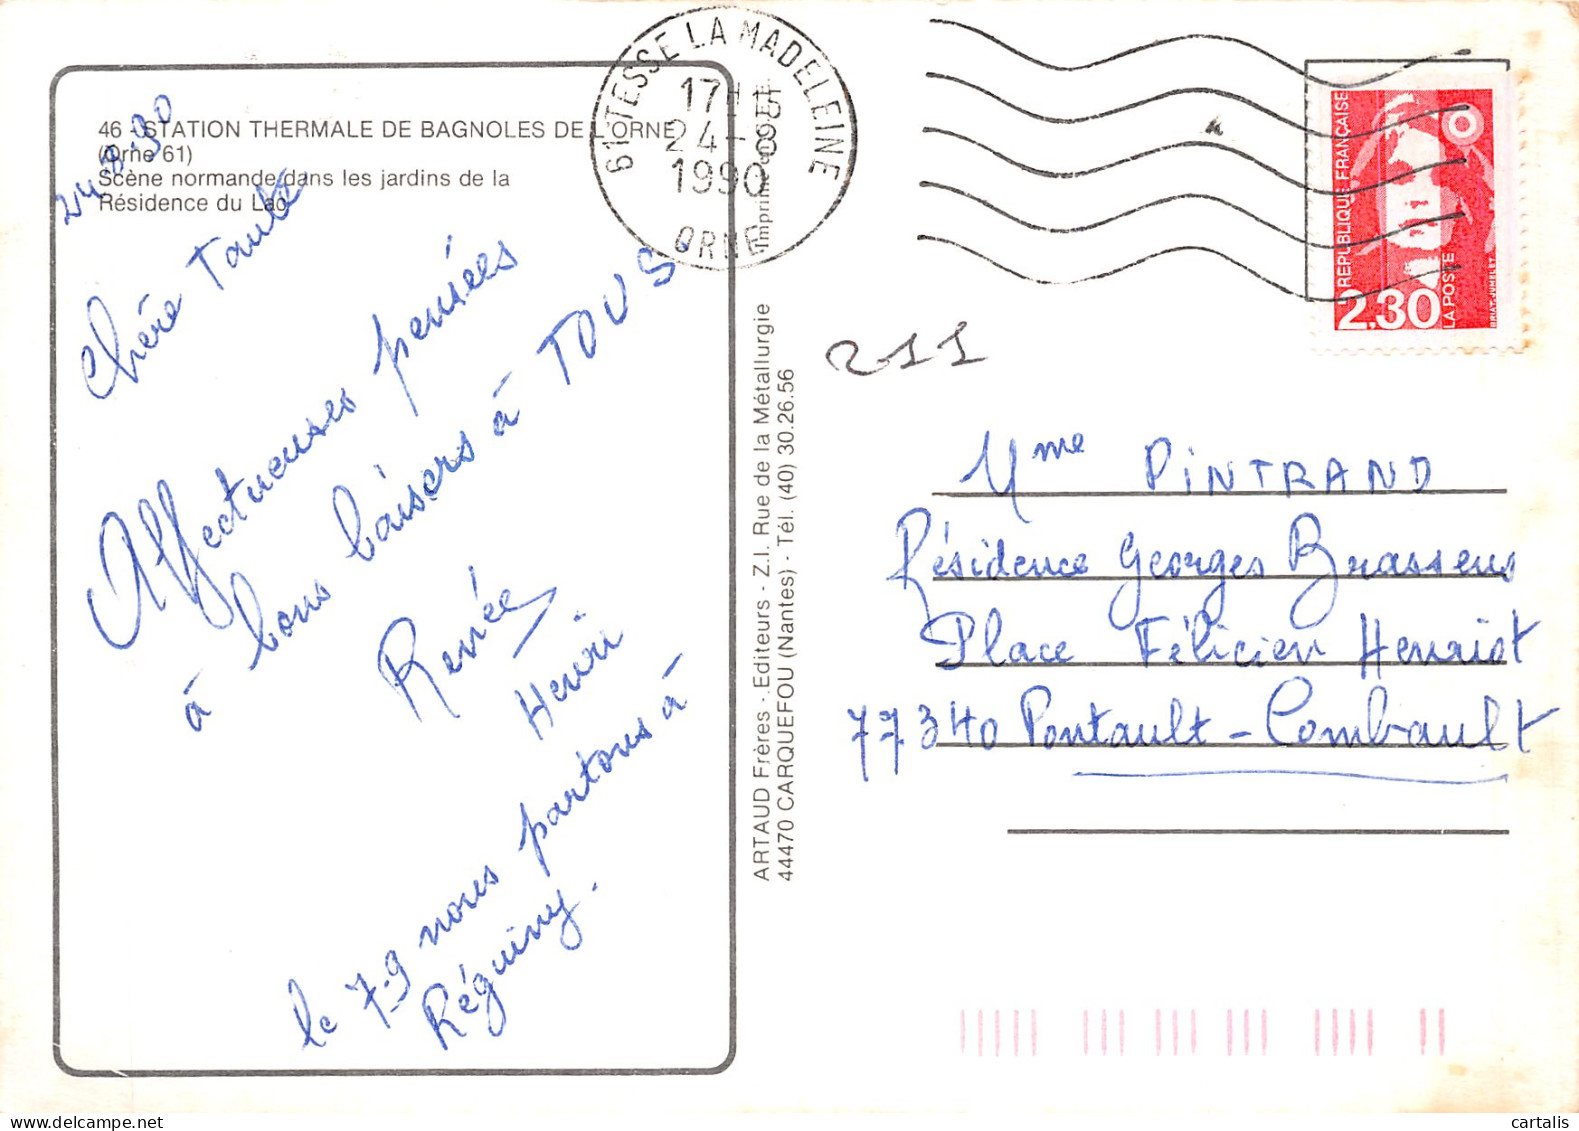 46 - STATION THERMALE DE BAGNOLES DE L'ORNE
(Orne 61)
Scène normande dans les jardins de la
Résidence du Lac.
24-8-90
Chère Tante,
Affectueuses pensées
à bons baisers à TOUS.
Renée
Henri
le 7-9 nous partons à
Réguiny.
ARTAUD Frères - Editeurs - Z.I. Rue de la Métallurgie
44470 CARQUEFOU (Nantes) - Tél. (40) 30.26.56
61 TESSE LA MADELEINE
17H15
24-8
1990
ORNE
REPUBLIQUE FRANÇAISE
2,30
LA POSTE
BRIAT-JUMELET
211
Mme PINTRAND
Résidence Georges Brassens
Place Félicien Henriot
77340 Pontault-Combault
cartalis